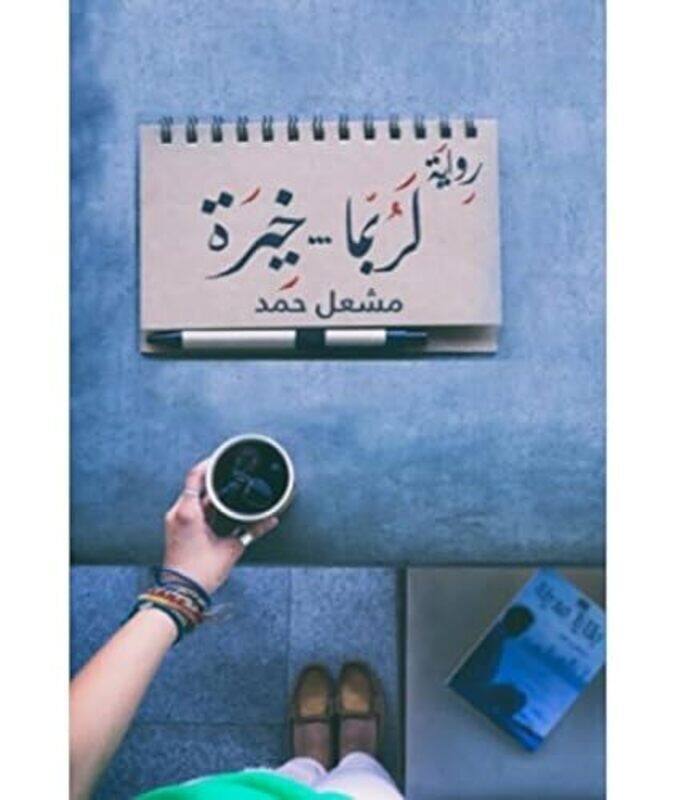 رِواية
لَرُبَّما ... خِيَرَة
مشعل حمد